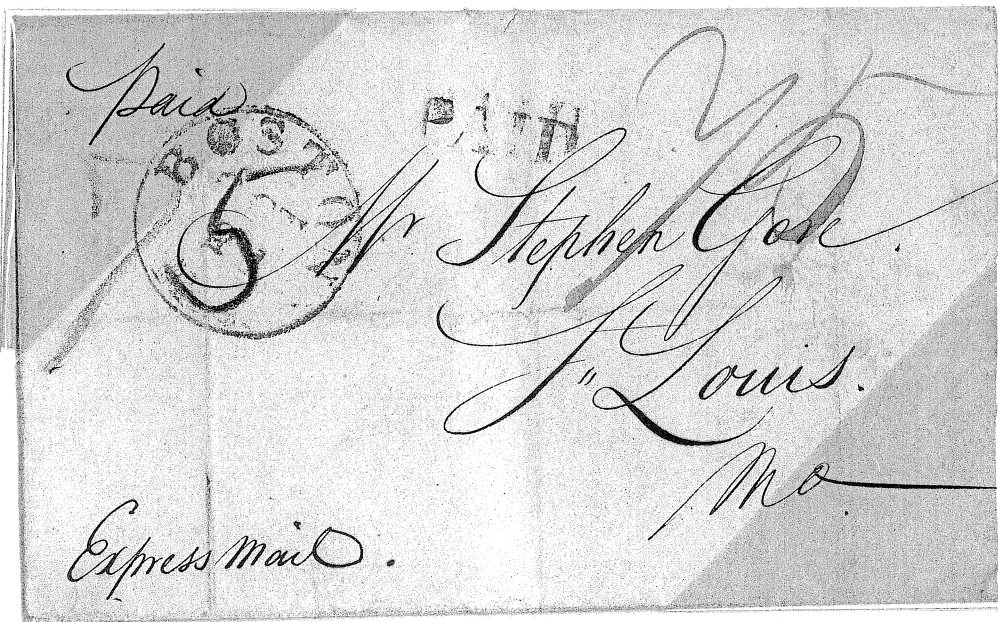 Paid
PAID
BOSTON
75
Mr Stephen Gore.
St Louis.
Mo
Express Mail.